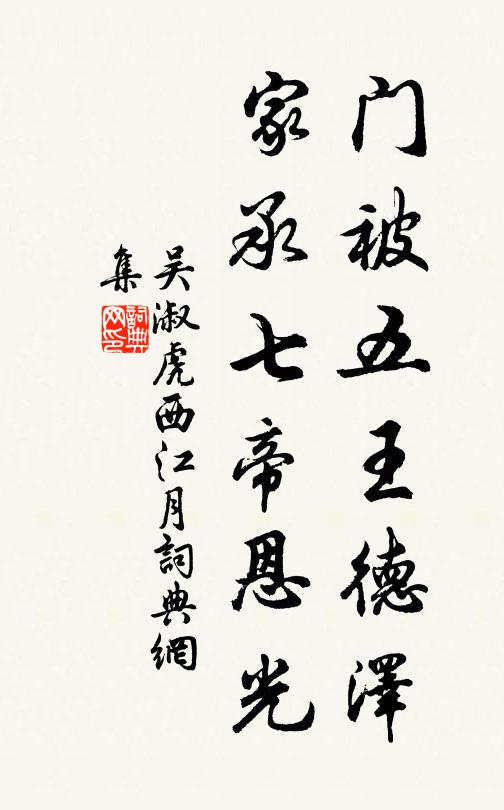 门被五王德澤
家承七帝恩光
吴淑虎西江月詞典網
集
詞典网印